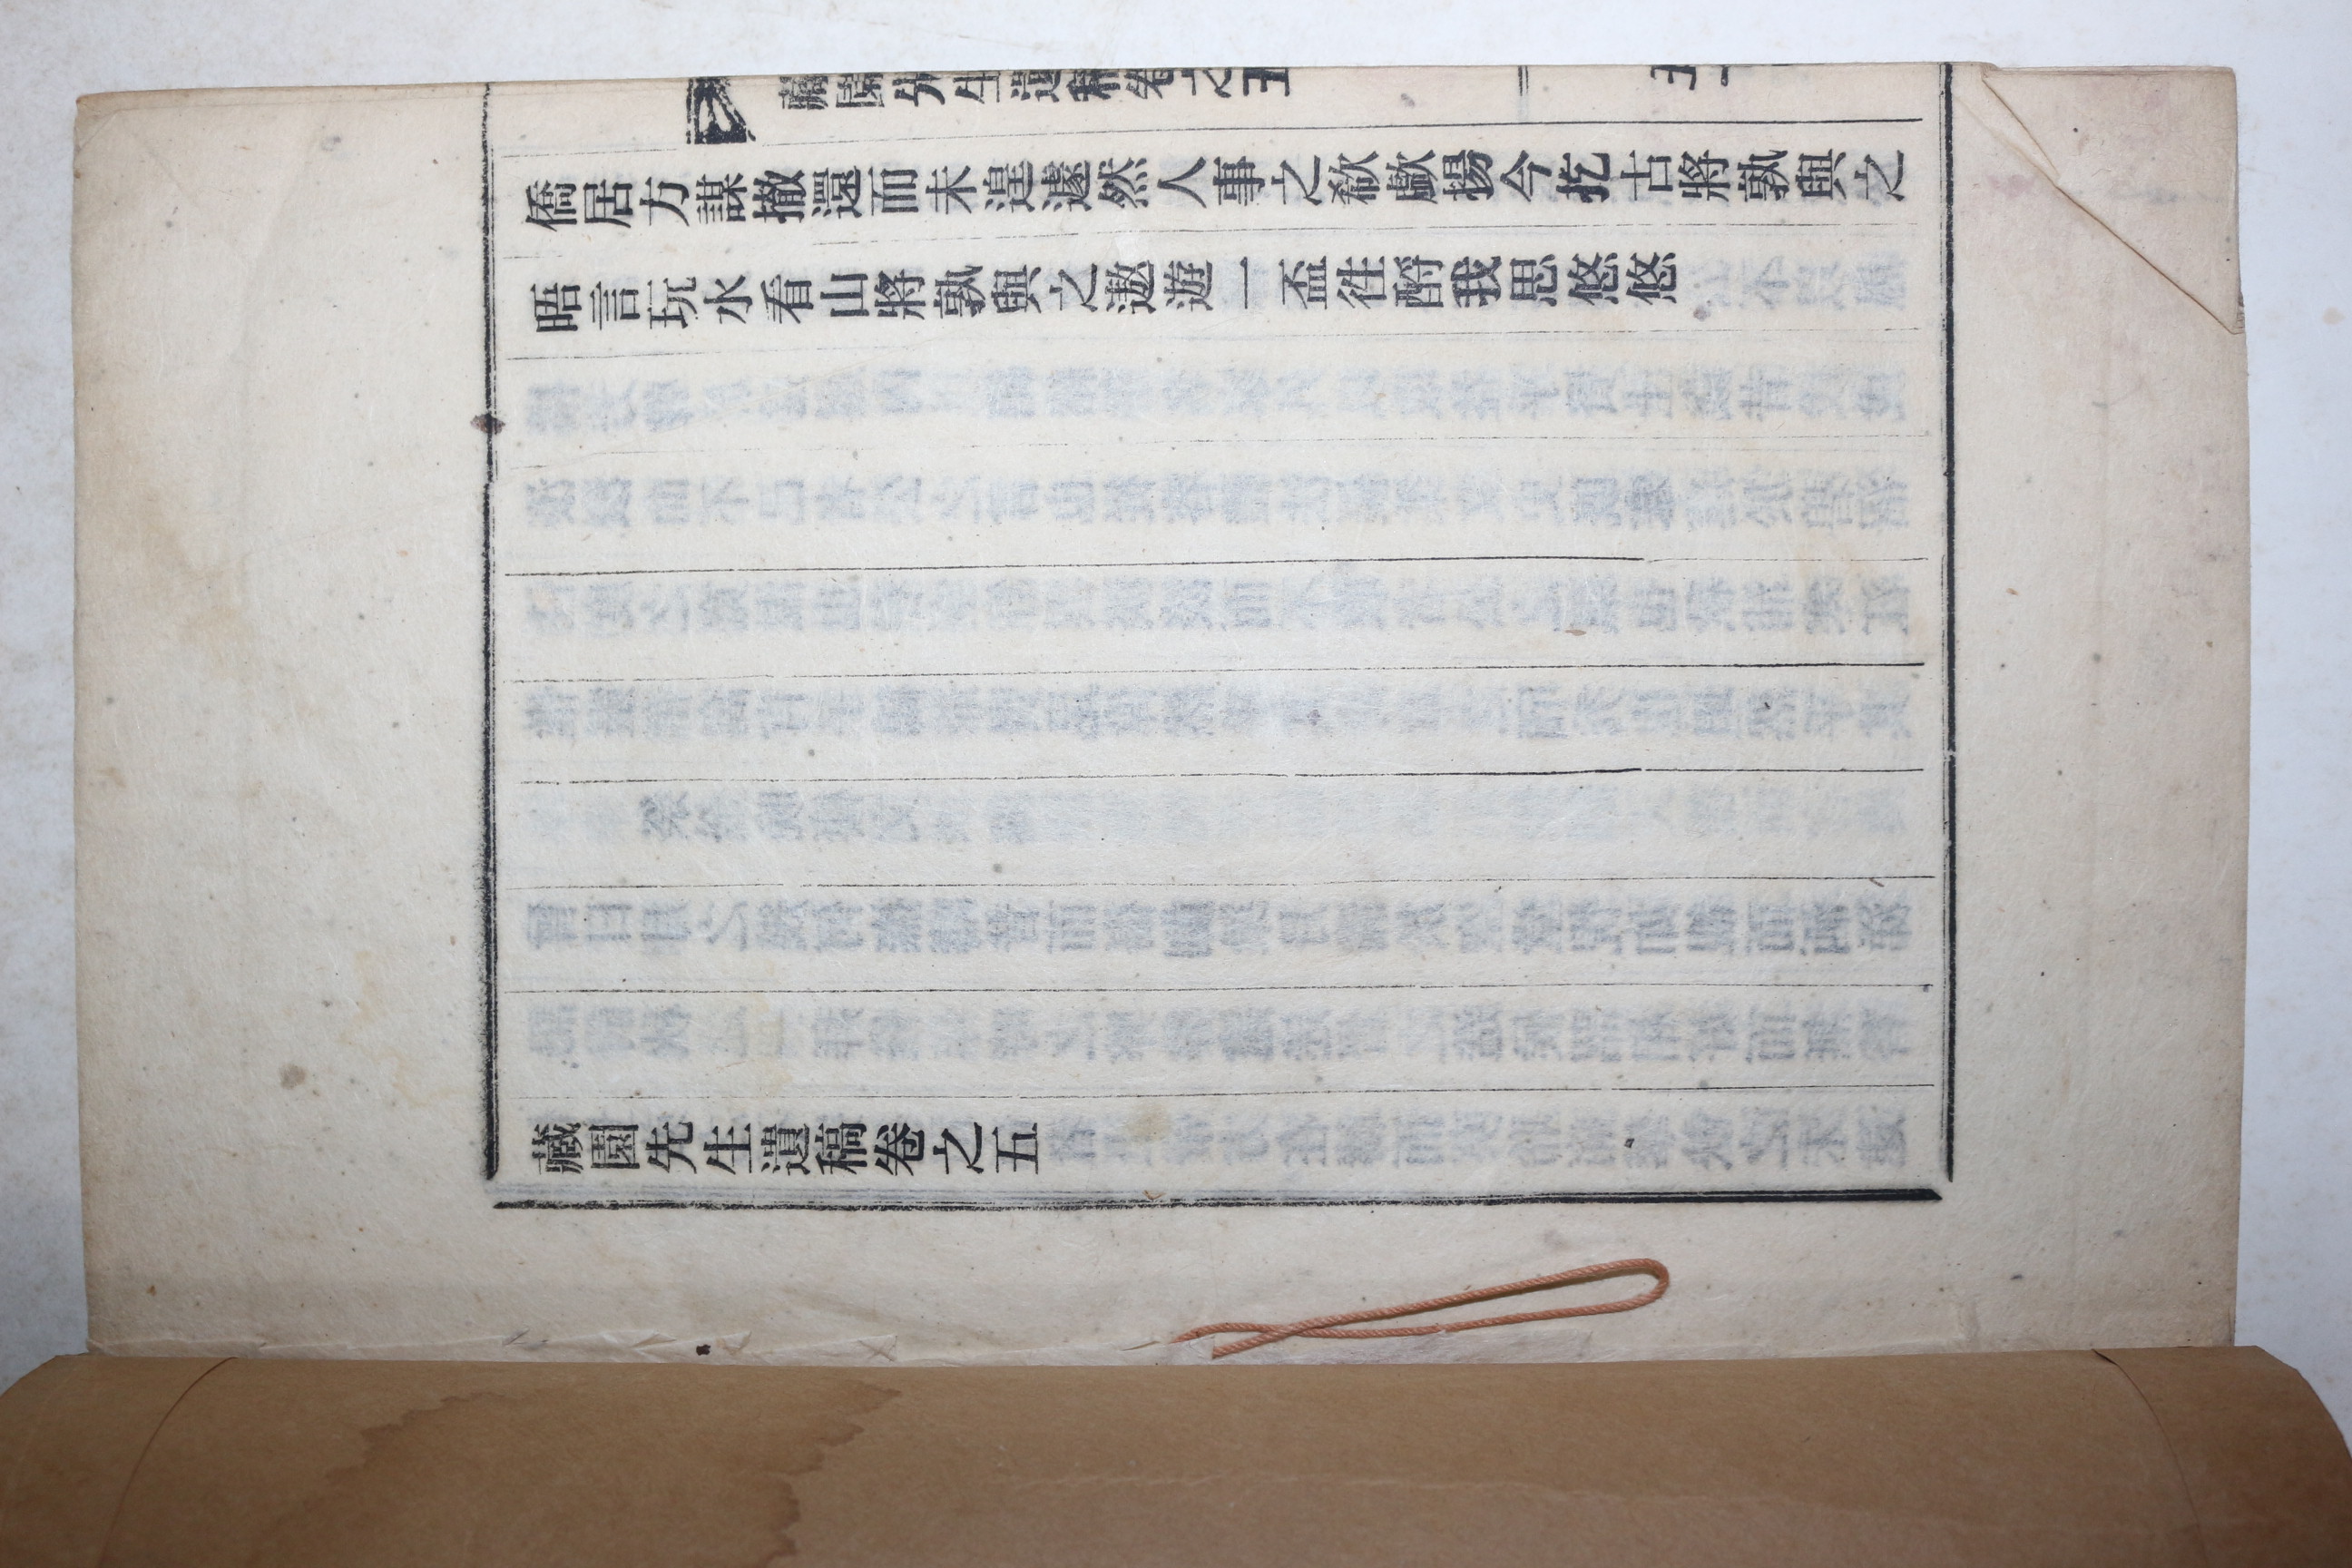 藏園先生遺稿卷之五
僑居方謀撤還而未遑遽然人事之欷歔揚今扢古將孰與之
晤言玩水看山將孰與之遨遊一盃徃酹我思悠悠
藏園先生遺稿卷之五